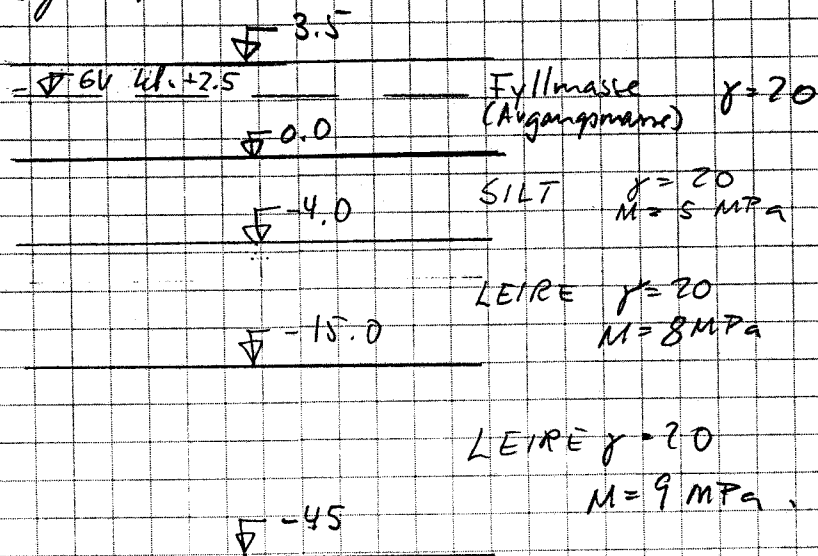 3.5
GV kl. +2.5
Fyllmasse γ=20
(Avgangsmasse)
0.0
SILT γ=20
M=5 MPa
-4.0
LEIRE γ=20
M=8MPa
-15.0
LEIRE γ=20
M=9 MPa.
-45